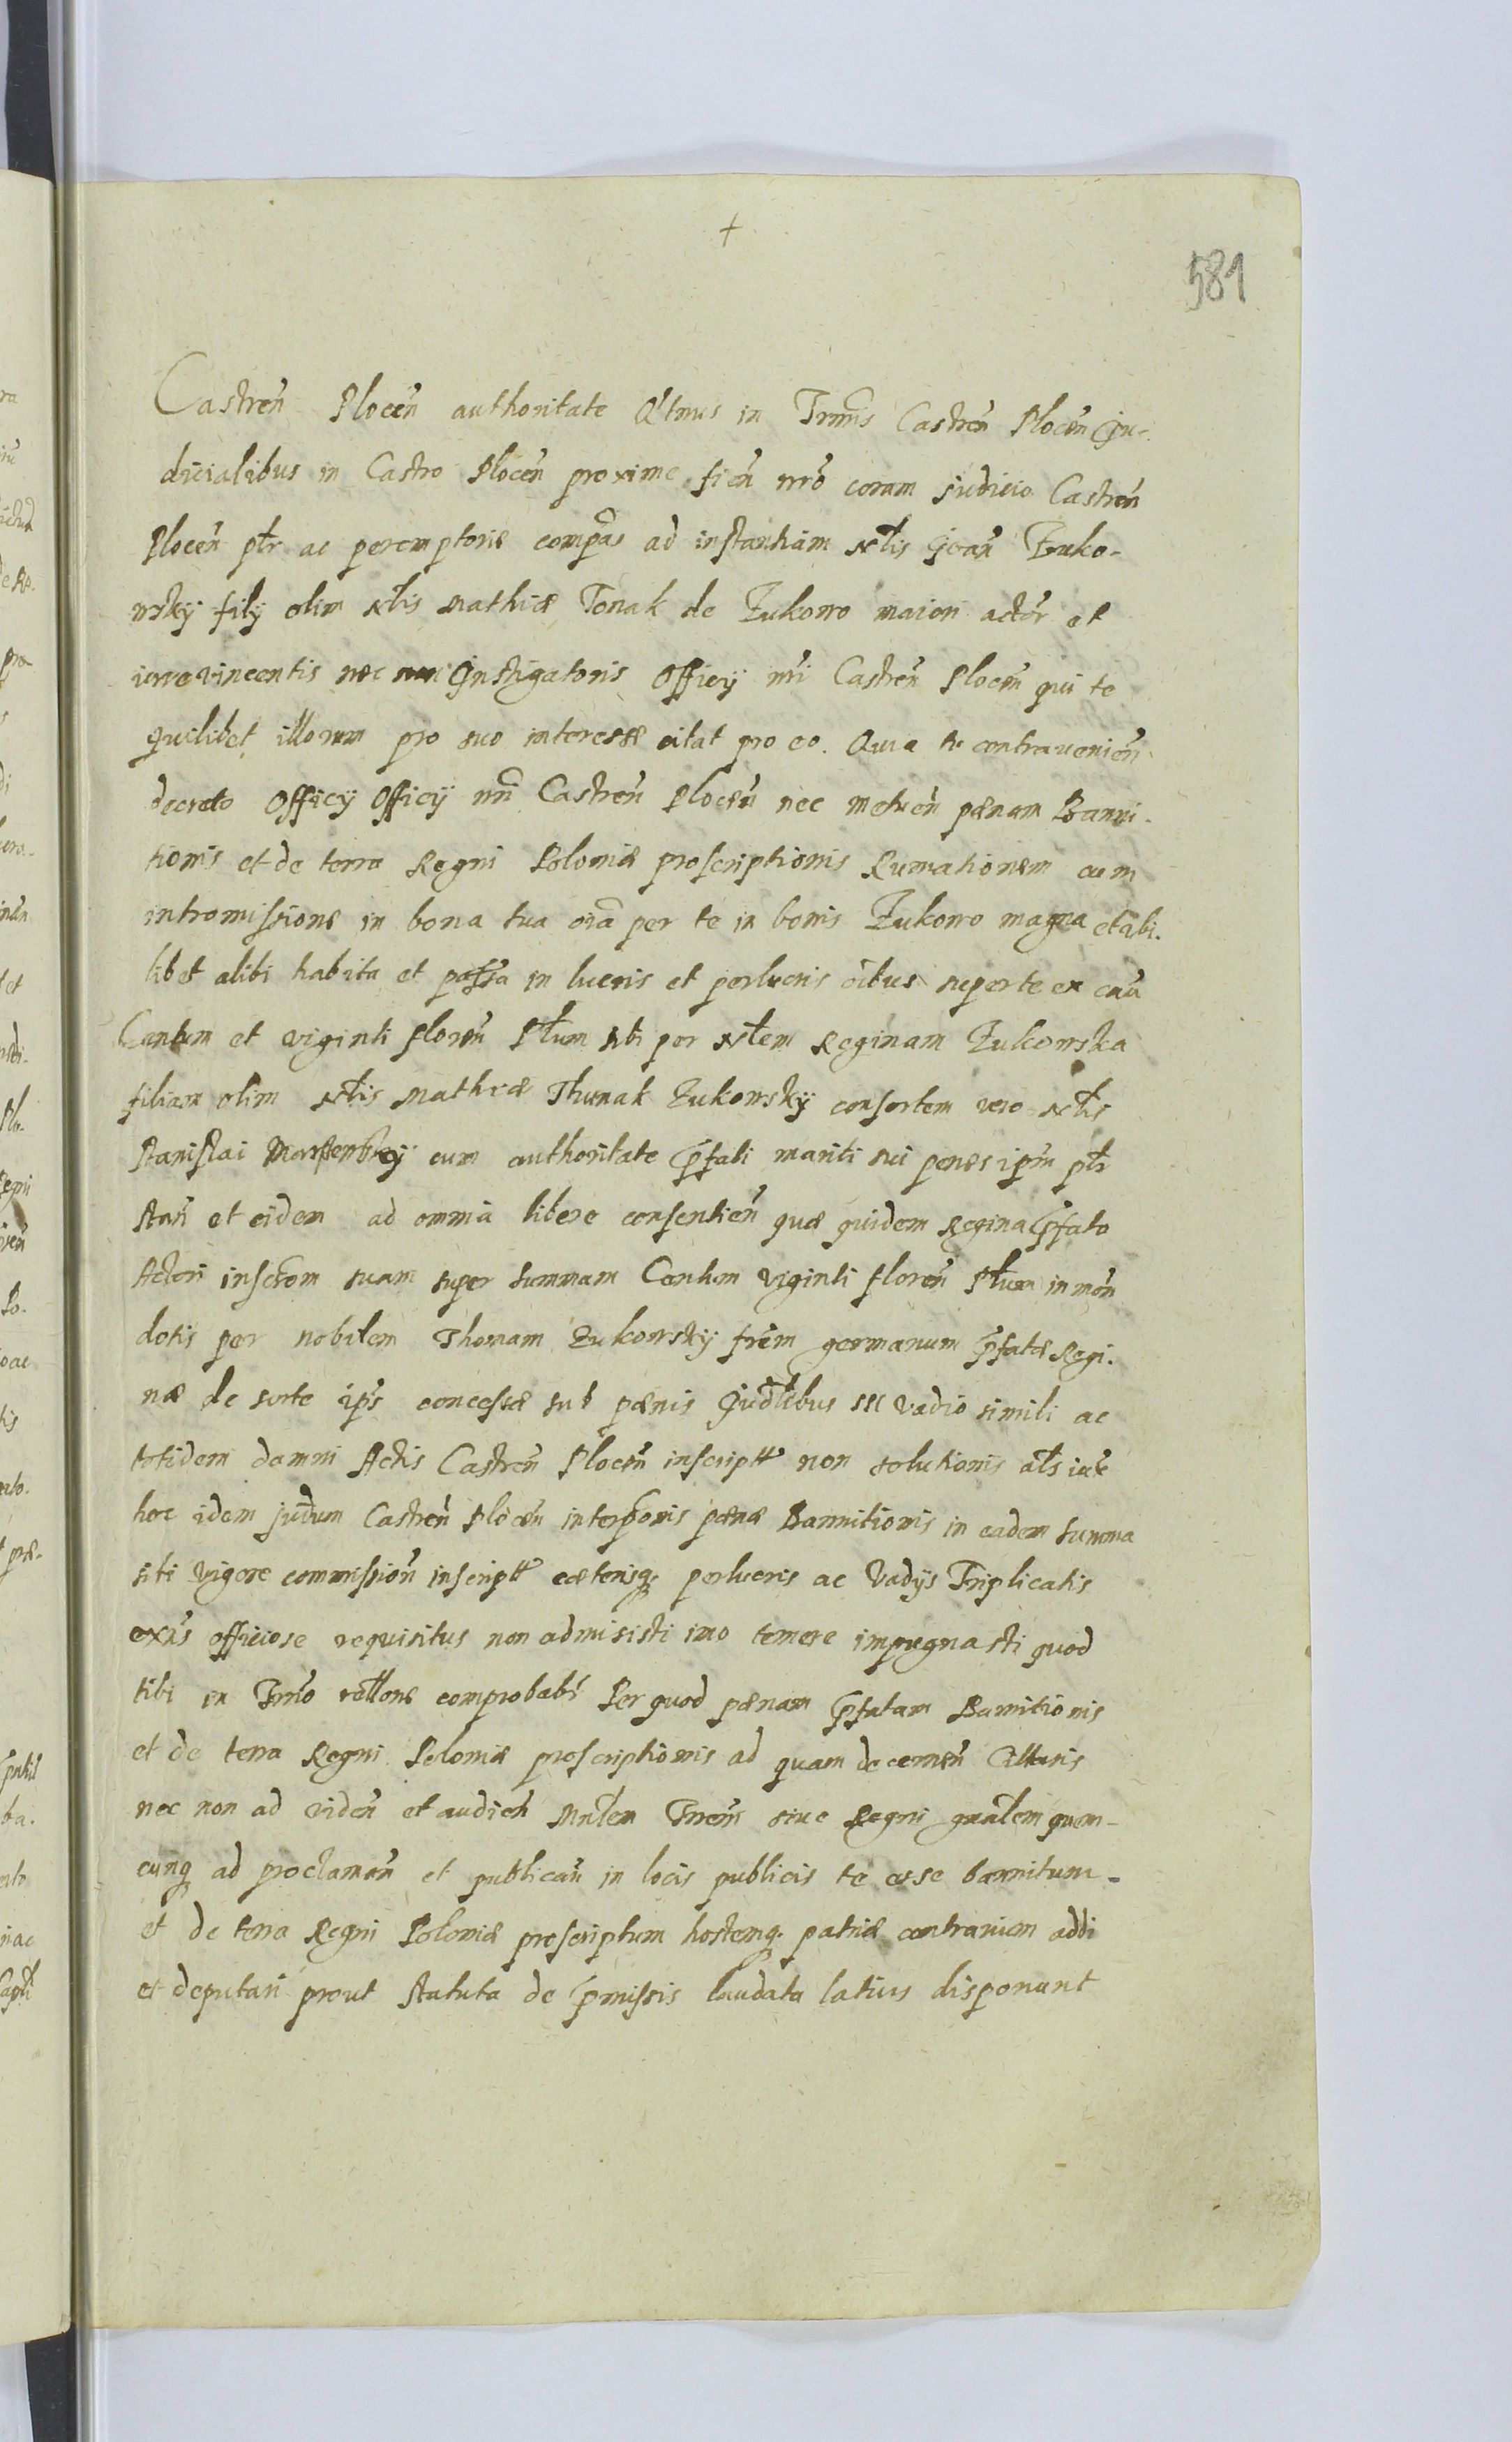 +
581
Castren̄ Plocen̄ authoritate Q̄tnus in Trm̄nis Castren̄ Plocen̄ Ju-
dicialibus in Castro Plocen̄ proxime fien̄ nr̄o coram judicio Castren̄
Plocen̄ pt̄r ac peremptorie compēas ad instantiam Nt̄lis Joan̄ Zuko-
wskÿ filÿ olim Nt̄lis Mathiæ Tonak de Zukowo maiori actōr et
iurevincentis nec non Instigatoris Officÿ nr̄i Castren̄ Plocen̄ qui te
quilibet illorum pro suo interesse citat pro eo. Quia tu contravenien̄
decreto Officÿ Officÿ nr̄i Castren̄ Plocen̄ nec metuen̄ pænam Banni-
tionis et de terra Regni Poloniæ proscriptionis Rumationem cum
intromissione in bona tua oīa per te in bonis Zukowo magna et ubi.
libet alibi habita et possa in lucris et perlucris oībus super te ex cāa
Centum et viginti floren̄ Pt̄um tibi per Nt̄lem Reginam Zukowska
filiam olim Nt̄lis Mathiæ Thunak Zukowskÿ consortem vero Nt̄lis
Stanislai cum authoritate p̄fati mariti sui penes ip̄m pt̄r
stan̄ et eidem ad omnia libere consentien̄ quæ quidem Regina p̄fato
Actori inscr̄om suam super summam Centum viginti floren̄ Pt̄um in mōn
dotis per nobilem Thomam Zukowskÿ frēm germanum p̄fatæ Regi.
næ de sorte ip̄s concessæ sub pænis Jud̄libus vadio simili ac
totidem damni Actis Castren̄ Plocen̄ inscriptt non solutionis at̄s iur̄e
hoc idem jud̄um Castren̄ Plocen̄ interp̄onis pænæ Bannitionis in eadem summa
siti vigore commission̄ inscriptt cæterisq; perlucris ac Vadÿs Triplicatis
exn̄s officiose requisitus non admisisti imo temere impugnasti quod
tibi in Trm̄o rel̄lone comprobab̄r Per quod pænam p̄fatam Bannitionis
et de terra Regni Poloniæ proscriptionis ad quam decernen̄ Citaris
nec non ad viden̄ et audien̄ Mnl̄em Tren̄m sive Regni gnāl̄em quem-
cunq; ad proclaman̄ et publican̄ in locis publicis te esse bannitum
et de terra Regni Poloniæ proscriptum hostemq; patriæ contrarium addi
et deputari prout statuta de p̄missis laudata latius disponunt